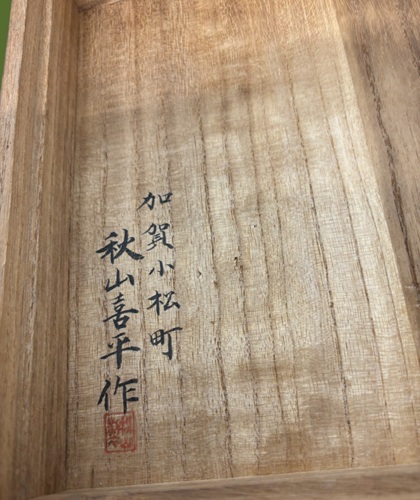 加賀小松町
秋山喜平作